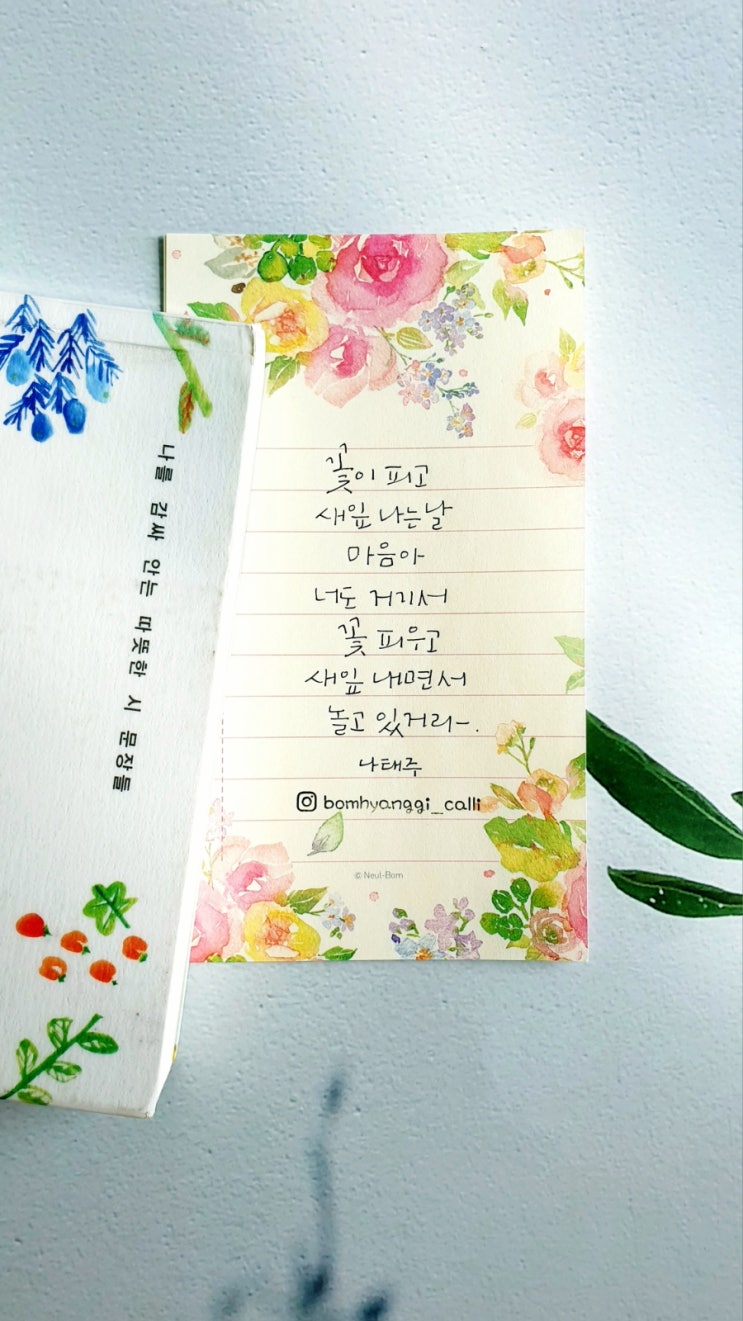 나를 감싸 안는 따뜻한 시 문장들
꽃이 피고
새잎 나는 날
마음아
너도 거기서
꽃 피우고
새잎 내면서
놀고 있거라-.
나태주
bomhyanggi_calli
© Neul-Bom